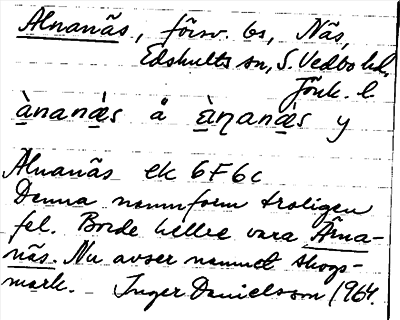 Alnanäs, försv. bs, Näs,
Edshults sn, S. Vedbo hd,
Jönk. l.
ànanæ̀s å ànanæ̀s y
Alnanäs ek 6F6c
Denna namnform troligen
fel. Borde hellre vara Åna-
näs. Nu avser namnet skogs-
mark. Inger Danielsson 1964.